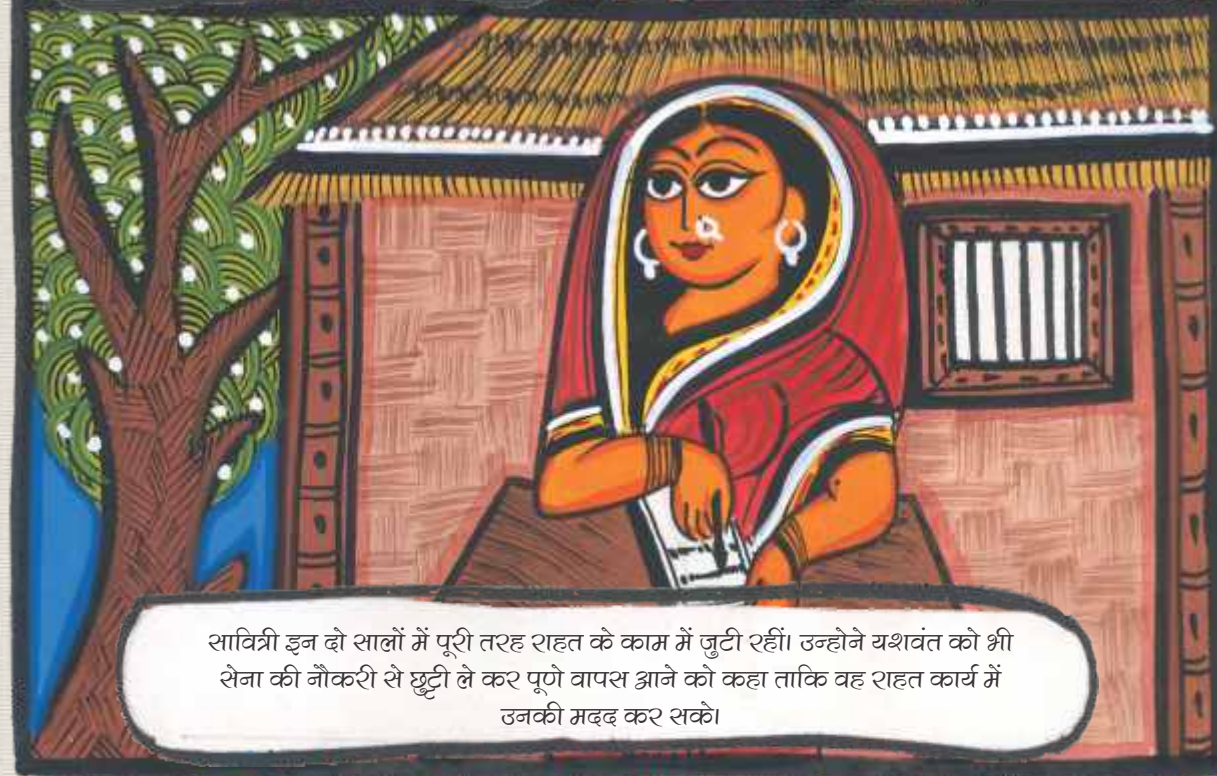 सावित्री इन दो सालों में पूरी तरह राहत के काम में जुटी रहीं। उन्होने यशवंत को भी
सेना की नौकरी से छुट्टी ले कर पूणे वापस आने को कहा ताकि वह राहत कार्य में
उनकी मदद कर सके।